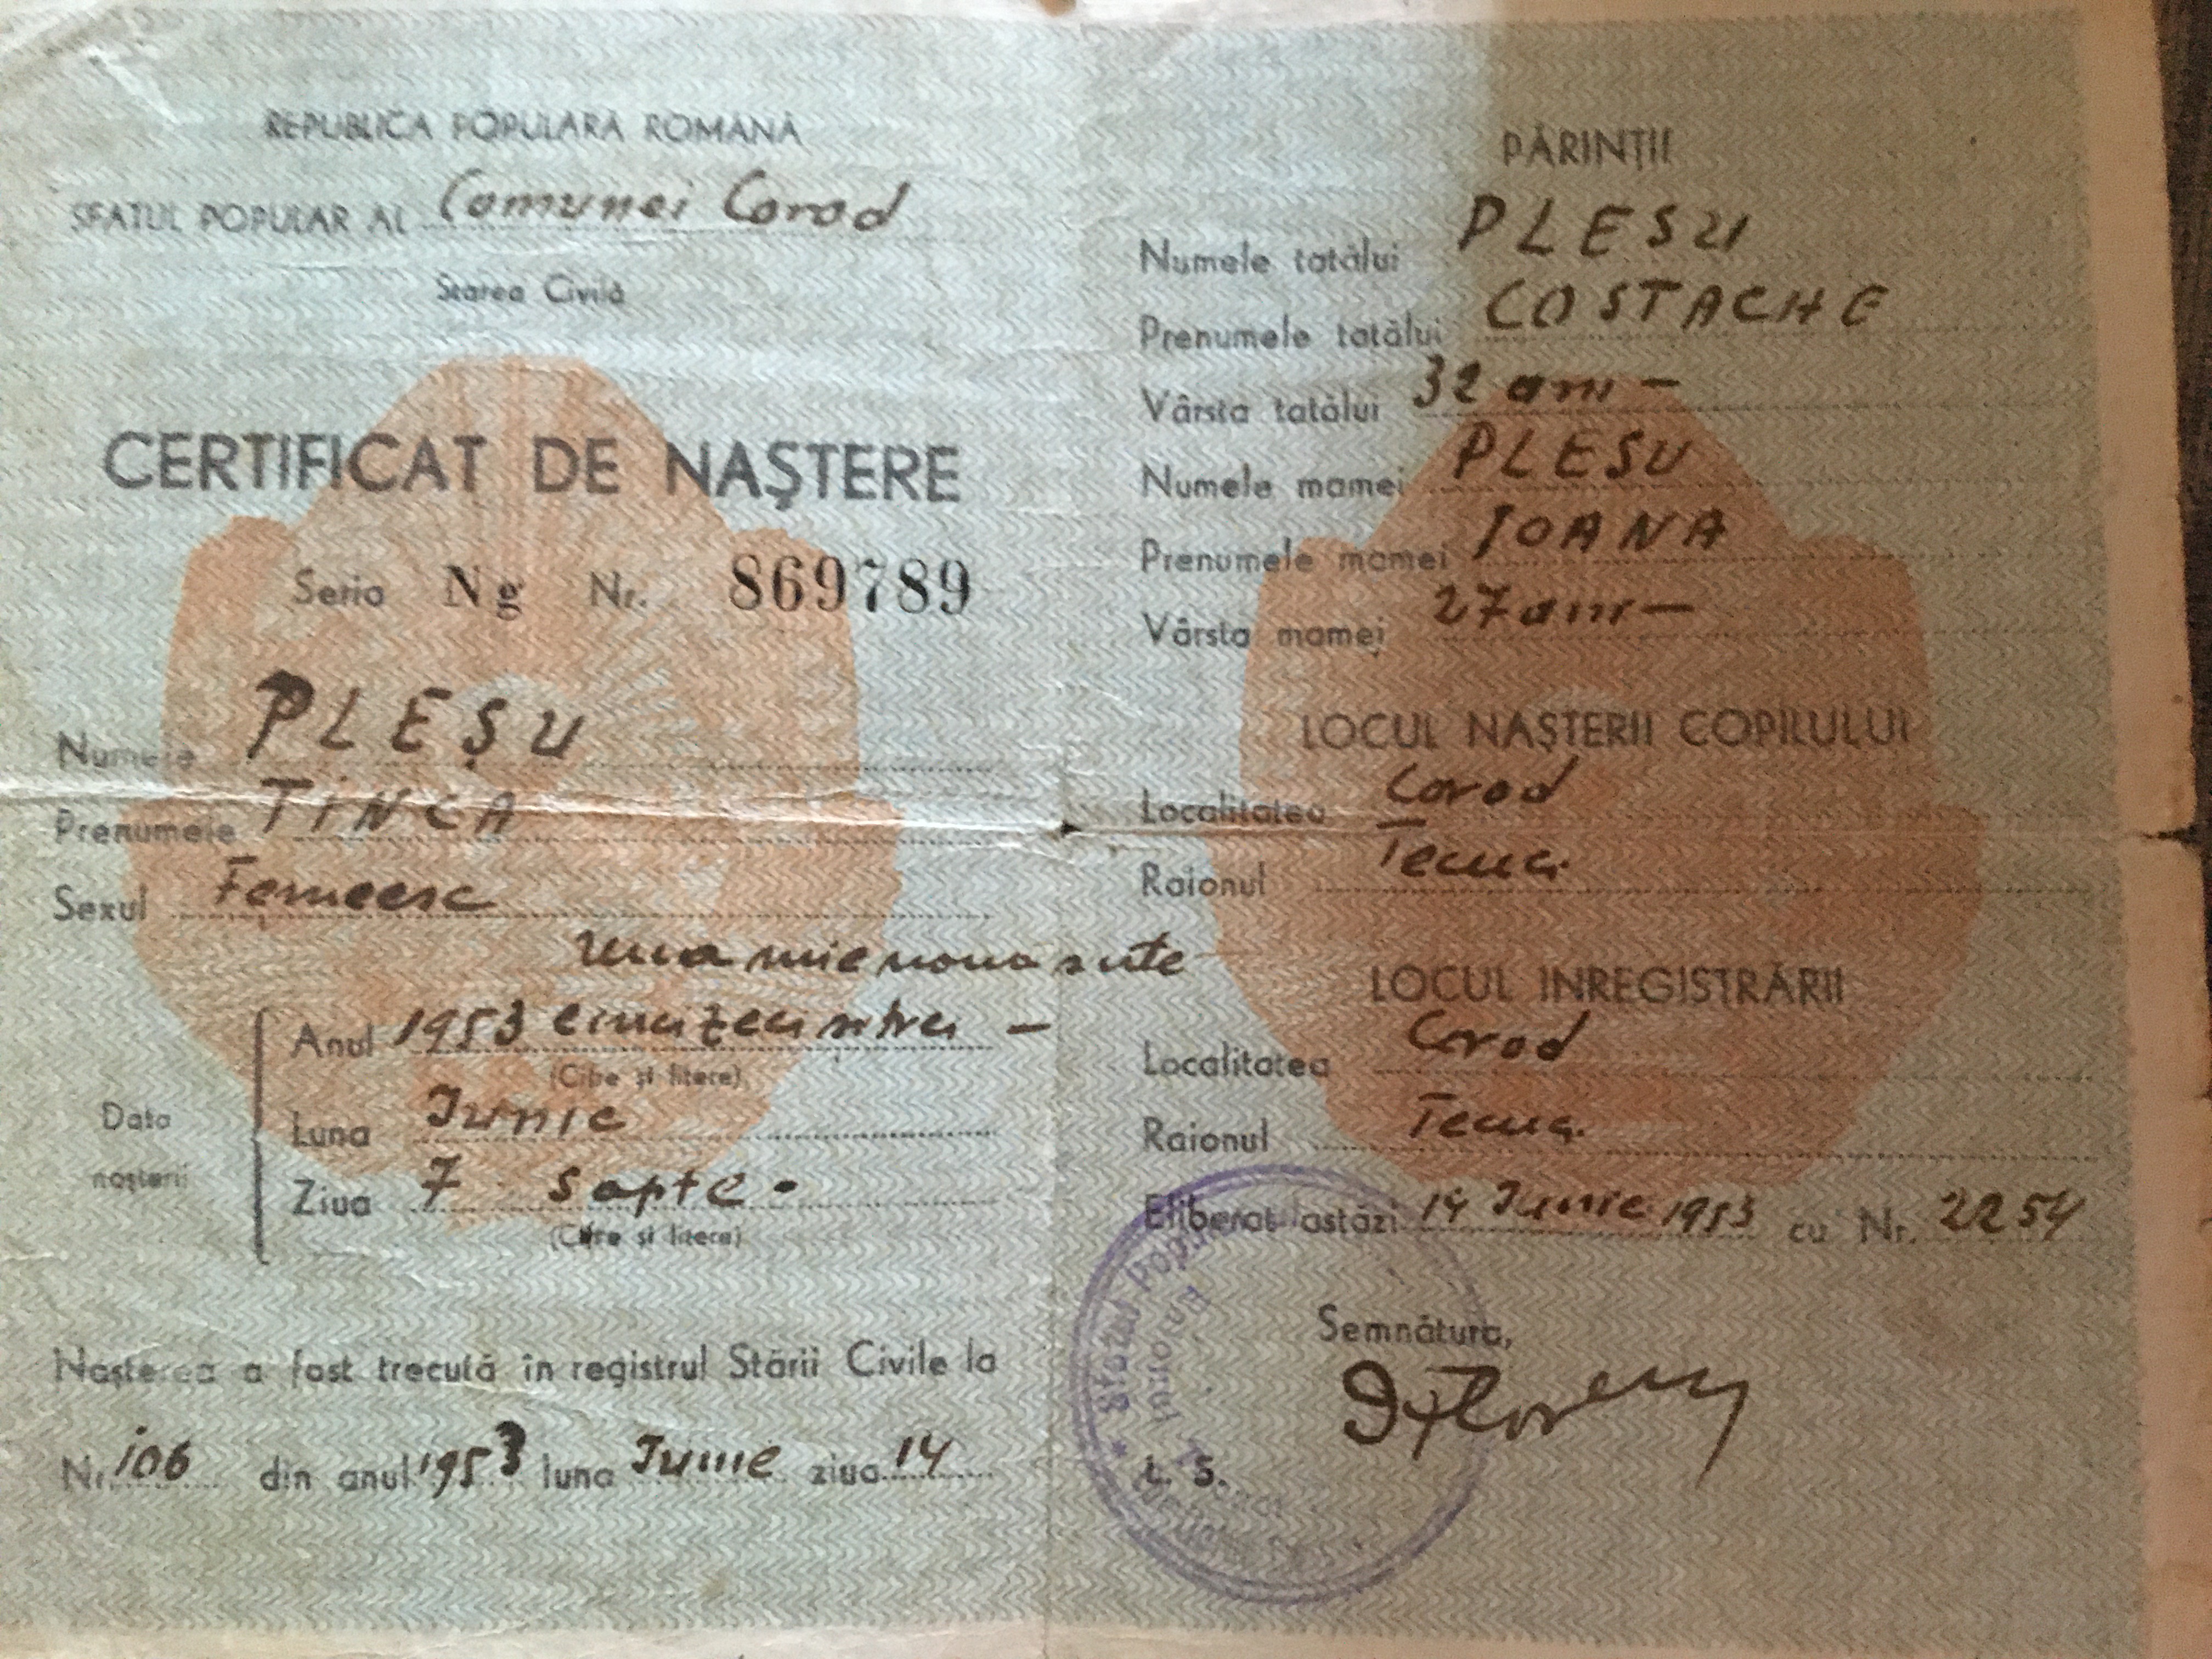 REPUBLICA POPULARĂ ROMÂNĂ
SFATUL POPULAR AL Comunei Corod
Starea Civilă
CERTIFICAT DE NAȘTERE
Seria Ng Nr. 869789
Numele PLEȘU
Prenumele TINCA
Sexul Femeesc
una mie noua sute
Anul 1953 cinci zeci si trei —
(Cifre și litere)
Data nașterii
Luna Iunie
Ziua 7 sapte -
(Cifre și litere)
Nașterea a fost trecută în registrul Stării Civile la
Nr. 106 din anul 1953 luna Iunie ziua 14
PĂRINȚII
Numele tatălui PLESU
Prenumele tatălui COSTACHE
Vârsta tatălui 32 ani —
Numele mamei PLESU
Prenumele mamei IOANA
Vârsta mamei 27 ani —
LOCUL NAȘTERII COPILULUI
Localitatea Corod
Raionul Tecuci
LOCUL INREGISTRĂRII
Localitatea Corod
Raionul Tecuci
Eliberat astăzi 14 Iunie 1953 cu Nr. 2254
Semnătura,
L. S.
Sfatul Popular
Raionul